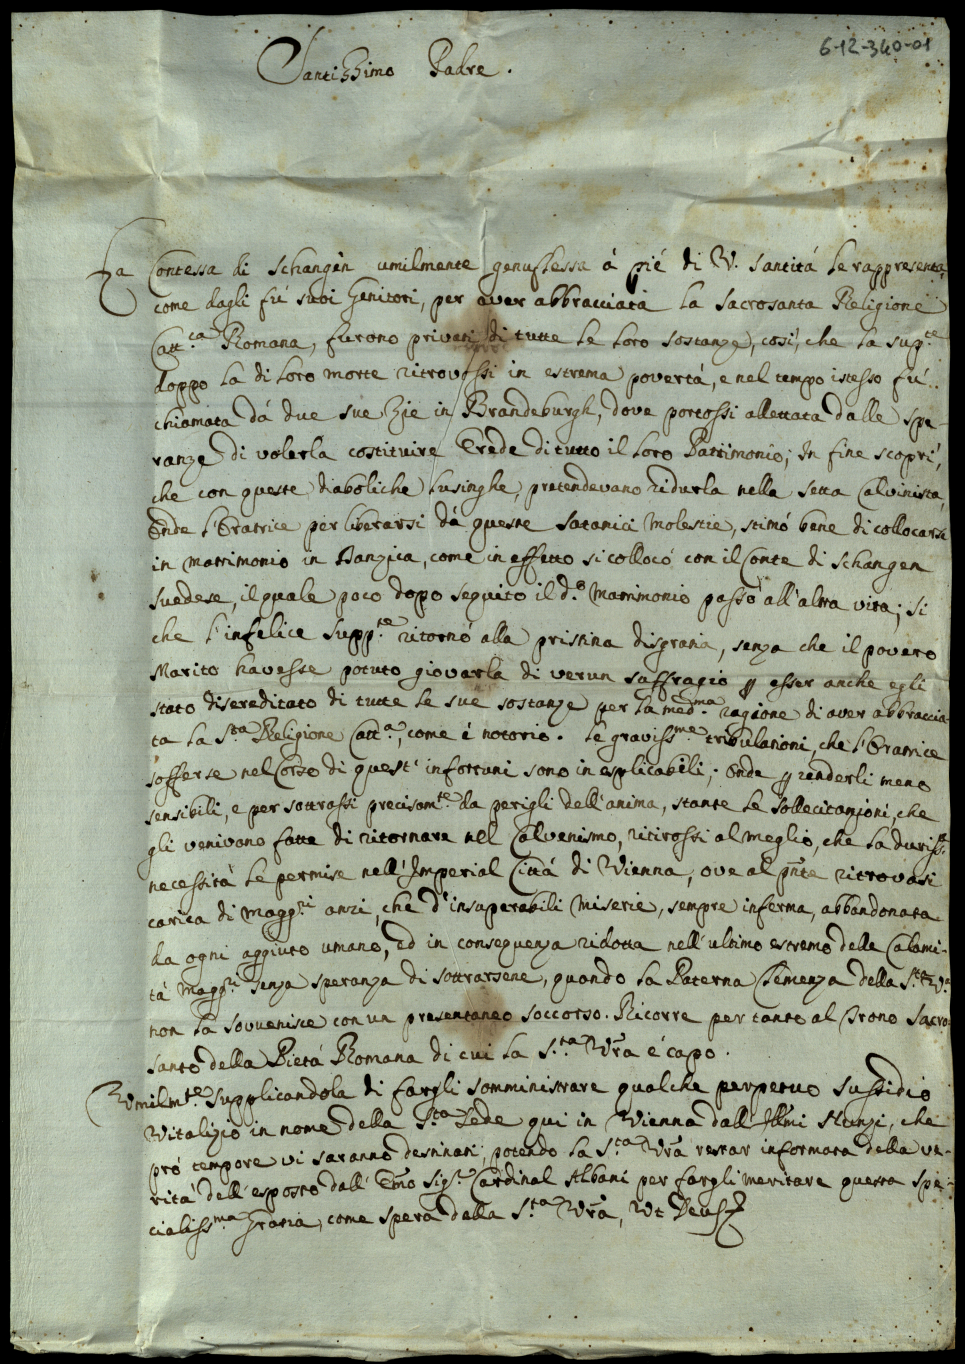 6-12-340-01
Santissimo Padre.
La Contessa di Schangèn umilmente genuflessa à pié di V. Santitá le rappresenta,
come dagli fú suoi Genitori, per aver abbracciata la Sacrosanta Religione
Catt.ca Romana, furono privati di tutte le loro sostanze, cosí, che la sup.te
doppo la di loro morte ritrovossi in estrema povertá, e nel tempo istesso fú
chiamata dá due sue Zie in Brandeburgh, dove portossi allettata dalle spe-
ranze di volerla costituire Erede di tutto il loro Patrimonio; In fine scoprí,
che con queste diaboliche lusinghe, pretendevano ridurla nella setta Calvinista,
Onde l'Oratrice per liberarsi dá queste satanici molestie, stimó bene di collocarsi
in matrimonio in Danzica, come in effetto si collocó con il Conte di Schangen
Suedese, il quale poco dopo seguito il d.o Matrimonio passó all'altra vita; si
che l'infelice supp.te ritornó alla pristina disgratia, senza che il povero
Marito havesse potuto giovarla di verun suffragio p esser anche egli
stato disereditato di tutte le sue sostanze per la med.ma ragione di aver abbraccia-
ta la S.ta Religione Catt.a, come é notorio. Le graviss.me tribulationi, che l'Oratrice
sofferse nel Corso di quest' infortuni sono inesplicabili; Onde p renderli meno
sensibili, e per sottrassi precisam.te da perigli dell'anima, stante le sollecitazioni, che
gli venivano fatte di ritornare nel Calvenismo, ritirossi al meglio, che la duriss.a
necessitá le permise nell'Imperial Cittá di Vienna, ove al pnte ritrovasi
carica di magg.ri anzi, che d'insuperabili miserie, sempre inferma, abbandonata
da ogni aggiuto umano, ed in conseguenza ridotta nell'ultimo estremo delle Calami-
tá magg.ri senza speranza di sottrarsene, quando la Paterna Clemenza della S.tà V.a
non la sovvenisce con un presentaneo soccorso. Ricorre per tanto al Trono Sacro-
santo della Pietá Romana di cui la S.ta Vra é capo.
Umilm.te supplicandola di fargli somministrare qualche perpetuo sussidio
Vitalizio in nome della S.ta Sede qui in Vienna dall'Illmi Nunzi, che
pró tempore vi saranno destinati; potendo la S.ta Vra restar informata della ve-
ritá dell'esposto dall'Emo Sig.r Cardinal Albani per fargli meritare questa spe-
cialiss.ma Gratia, come spera della S.ta Vra, Ut Deus